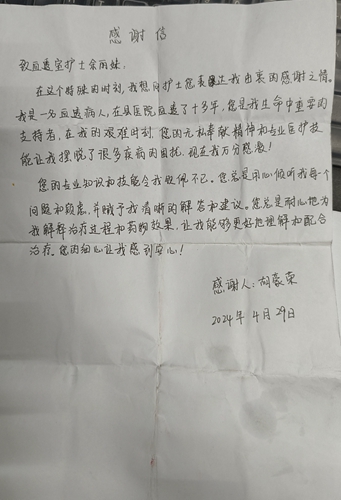 感谢信
致血透室护士余丽妹:
在这个特殊的时刻,我想向护士您表达我由衷的感谢之情。
我是一名血透病人,在县医院血透了十多年,您是我生命中重要的
支持者,在我的艰难时刻,您的无私奉献精神和专业医护技
能让我摆脱了很多疾病的困扰,现在我万分感激!
您的专业知识和技能令我佩佩不已。您总是用心倾听我每一个
问题和疑虑,并赋予我清晰的解答和建议。您总是耐心地为
我解释治疗过程和药物效果,让我能够更好地理解和配合
治疗。您的细心让我感到安心!
感谢人:胡豪荣
2024年4月29日